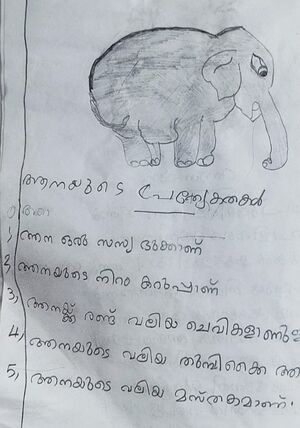 ആനയുടെ പ്രത്യേകതകൾ
1, ആന ഒരു സസ്യ ഭുക്കാണ്
2, ആനയുടെ നിറം കറുപ്പാണ്
3, ആനയ്ക്ക് രണ്ട് വലിയ ചെവികളാണുള്ള
4, ആനയുടെ വലിയ തുമ്പിക്കൈ
5, ആനയുടെ വലിയ മസ്തകമാണ്.